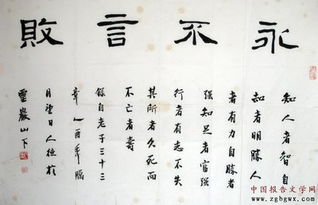 永不言敗
知人者智自
知者明勝人
者有力自勝者
强知足者富强
行者有志不失
其所者久死而
不亡者壽
錄自老子三十三
章乙酉年臘
月望日人於
靈巖山下
中国报告文学网
www.zgbgwx.com